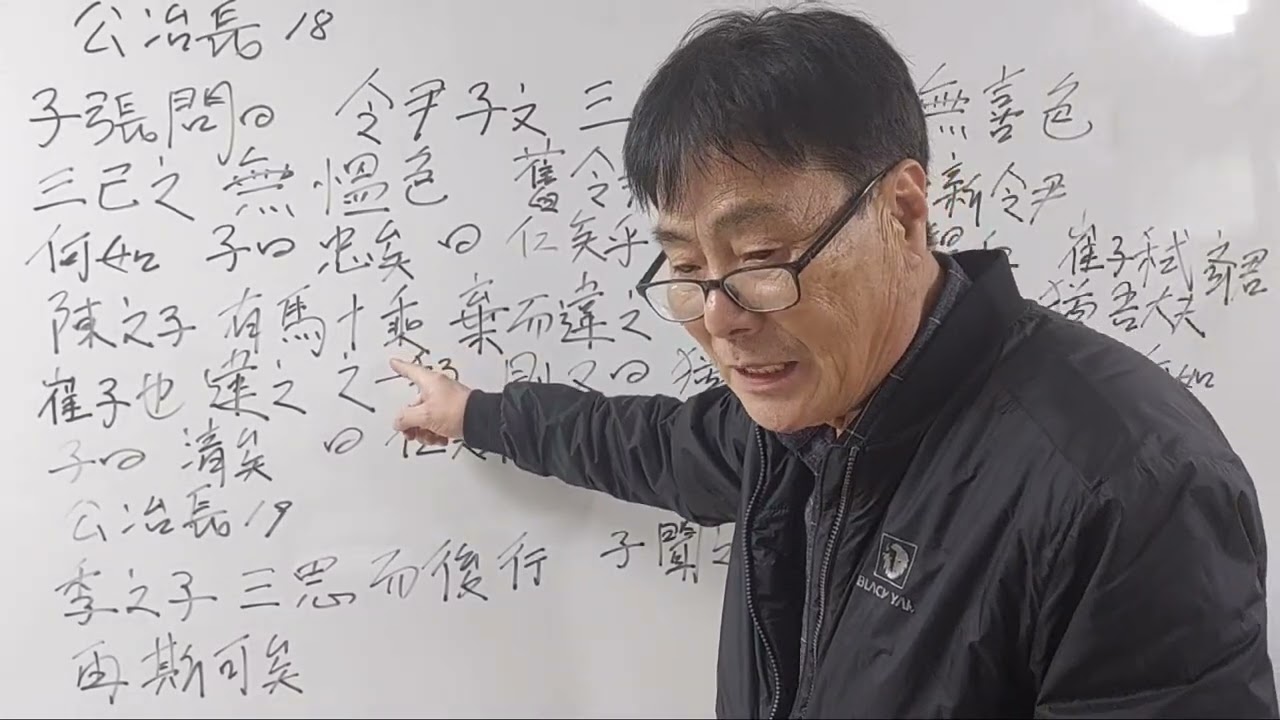 公冶長 18
子張問曰 令尹子文 三 無喜色
三已之 無慍色 舊令 新令尹
何如 子曰 忠矣 曰 仁矣乎 崔子弑齊君
陳之子 有馬十乘 棄而違之 猶吾大夫
崔子也 違之 之一 則又曰 猶 如
子曰 淸矣 曰 仁
公冶長 19
季之子 三思而後行 子聞之
再斯可矣
BLACK YAK